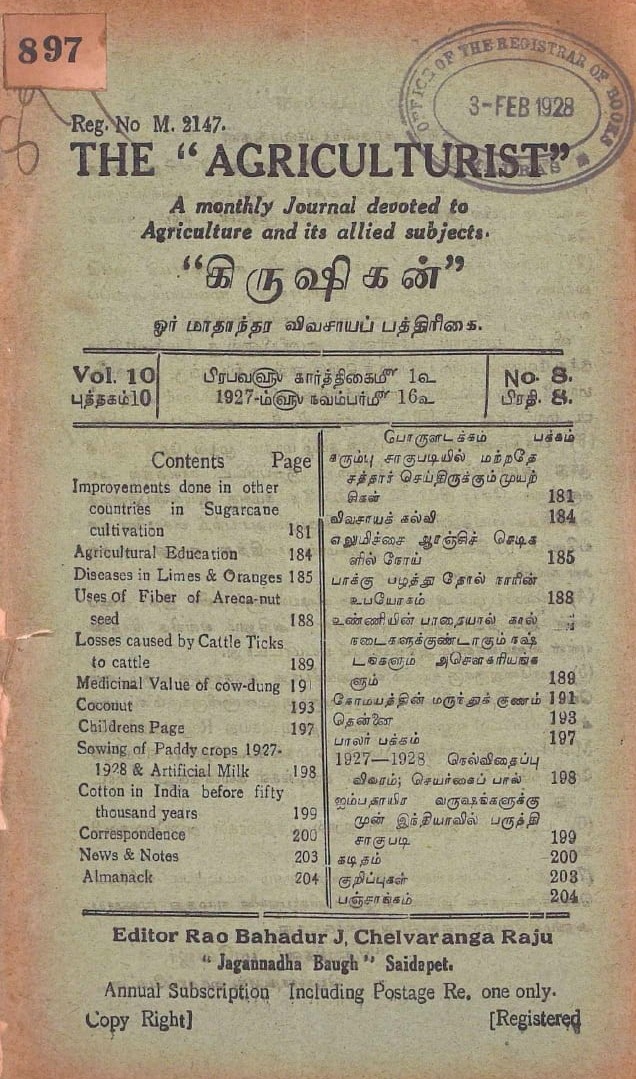 897
OFFICE OF THE REGISTRAR OF BOOKS
3-FEB 1928
Reg. No M. 2147.
THE "AGRICULTURIST"
A monthly Journal devoted to
Agriculture and its allied subjects.
"கிருஷிகன்"
ஓர் மாதாந்தர விவசாயப் பத்திரிகை.
Vol. 10
புத்தகம்10
பிரபவ௵ கார்த்திகை௴ 1௳
1927-ம்௵ நவம்பர்௴ 16௳
No. 8.
பிரதி. 8.
Contents Page
Improvements done in other
countries in Sugarcane
cultivation 181
Agricultural Education 184
Diseases in Limes & Oranges 185
Uses of Fiber of Areca-nut
seed 188
Losses caused by Cattle Ticks
to cattle 189
Medicinal Value of cow-dung 191
Coconut 193
Childrens Page 197
Sowing of Paddy crops 1927-
1928 & Artificial Milk 198
Cotton in India before fifty
thousand years 199
Correspondence 200
News & Notes 203
Almanack 204
பொருளடக்கம் பக்கம்
கரும்பு சாகுபடியில் மற்றதே
சத்தார் செய்திருக்கும்முயற்
சிகள் 181
விவசாயக் கல்வி 184
எலுமிச்சை ஆரஞ்சிச் செடிக
ளில் நோய் 185
பாக்கு பழத்து தோல் நாரின்
உபயோகம் 188
உண்ணியின் பாதையால் கால்
நடைகளுக்குண்டாகும் நஷ்
டங்களும் அசௌகரியங்க
ளும் 189
கோமயத்தின் மருந்துக் குணம் 191
தென்னை 193
பாலர் பக்கம் 197
1927—1928 நெல்விதைப்பு
விவரம்; செயர்கைப் பால் 198
ஐம்பதாயிர வருஷங்களுக்கு
முன் இந்தியாவில் பருத்தி
சாகுபடி 199
கடிதம் 200
குறிப்புகள் 203
பஞ்சாங்கம் 204
Editor Rao Bahadur J, Chelvaranga Raju
"Jagannadha Baugh" Saidapet.
Annual Subscription Including Postage Re. one only.
Copy Right] [Registered